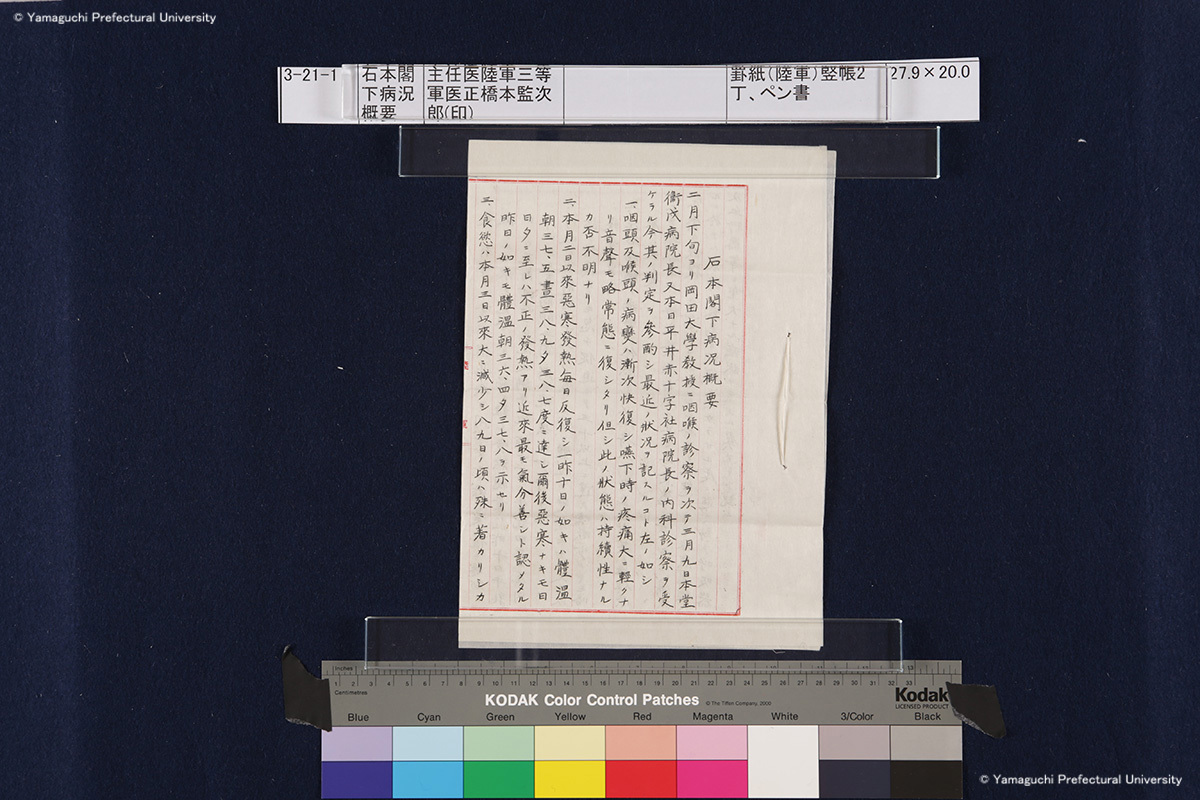 © Yamaguchi Prefectural University
3-21-1
石本閣
下病況
概要
主任医陸軍三等
軍医正橋本監次
郎(印)
罫紙(陸軍)竪帳2
丁、ペン書
27.9×20.0
石本閣下病况概要
二月下旬ヨリ岡田大學教授ニ咽喉ノ診察ヲ次テ三月九日本堂
衞戍病院長又本日平井赤十字社病院長ノ内科診察ヲ受
ケラル今其ノ判定ヲ參酌シ最近ノ狀况ヲ記スルコト左ノ如シ
一、咽頭及喉頭ノ病變ハ漸次快復シ嚥下時ノ疼痛大ニ輕クナ
リ音聲モ略常態ニ復シタリ但シ此ノ狀態ハ持續性ナル
カ否不明ナリ
二、本月二日以來惡寒發熱每日反復シ一昨十日ノ如キハ體溫
朝三七、五晝三八、九夕三八、七度ニ達シ爾後惡寒ナキモ日
日夕ニ至レハ不正ノ發熱アリ近來最モ氣分善シト認メタル
昨日ノ如キモ體溫朝三六、四夕三七、八ヲ示セリ
三、食慾ハ本月三日以來大ニ減少シ八九日ノ頃ハ殊ニ著カリシカ
Inches
Centimetres
KODAK Color Control Patches
© The Tiffen Company, 2000
Kodak
LICENSED PRODUCT
Blue
Cyan
Green
Yellow
Red
Magenta
White
3/Color
Black
© Yamaguchi Prefectural University